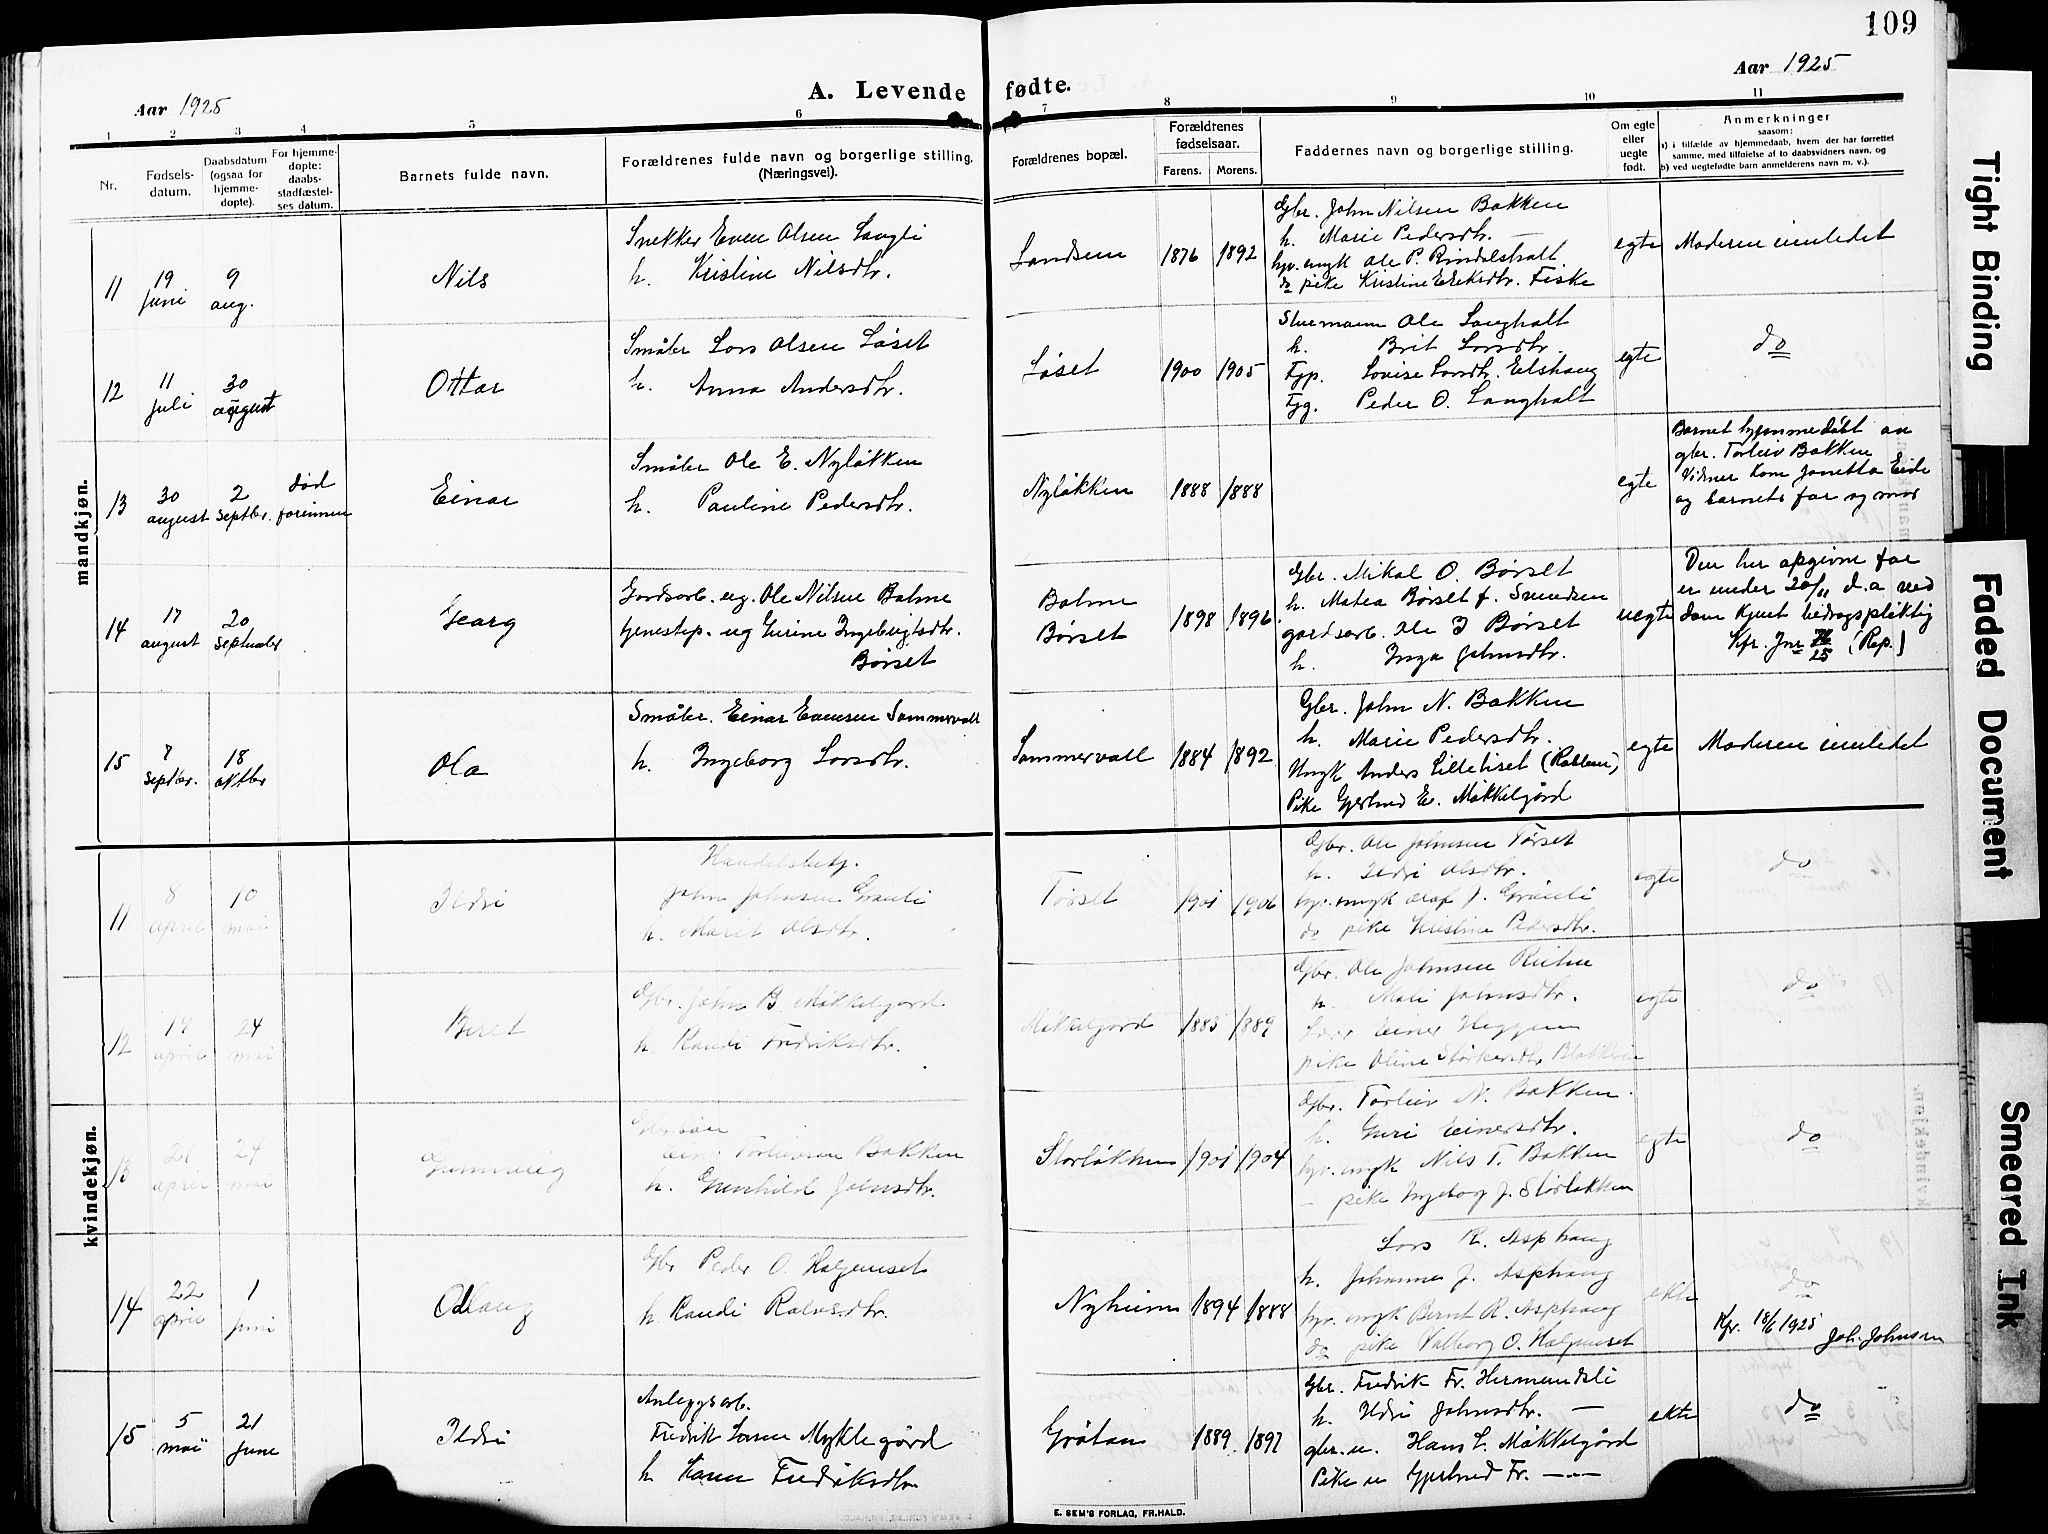 109
Aar 1925
A. Levende fødte.
Aar 1925
1 2 3 4 5 6 7 8 9 10 11
Nr.
Fødsels-
datum.
Daabsdatum
(ogsaa for
hjemme-
døpte).
For hjemme-
døpte:
daabs-
stadfæstel-
ses datum.
Barnets fulde navn.
Forældrenes fulde navn og borgerlige stilling.
(Næringsvei).
Forældrenes bopæl.
Forældrenes
fødselsaar.
Farens. Morens.
Faddernes navn og borgerlige stilling.
Om egte
eller
uegte
født.
Anmerkninger
saasom:
a) i tilfælde av hjemmedaab, hvem der har forrettet
samme, med tilføielse af to daabsvidners navn, og
b) ved uegtefødte barn anmelderens navn m. v.).
mandkjøn.
11
19
juni
9
aug.
Nils
Snekker Even Olsen Langli
h. Kristine Nilsdtr.
Landsem
1876 1892
Gbr. John Nilsen Bakken
h. Marie Pedersdtr. —
hjv. ungk Ole P. Rindalsholt
do pike Kristine Eriksdtr. Fiske
egte
Moderen innledet
12
11
juli
30
august
Ottar
Småbr Lars Olsen Løset
h. Anna Andersdtr.
Løset
1900 1905
Stuemann Ole Langholt
h. Brit Larsdtr.
Fgp. Lovise Larsdtr. Elshaug
Fgg. Peder O. Langholt
egte
do
13
30
august
2
septbr.
død
forinnen
Einar
Småbr Ole E. Nyløkken
h. Pauline Pedersdtr.
Nyløkken
1888 1888
egte
Barnet hjemmedøbt av
gbr. Torleiv Bakken
Vidner Kom Janetta Eide
og barnets far og mor
14
17
august
20
september
Georg
Gardsarb. ug. Ole Nilsen Bolme
tjenestep. ug Gurine Ingebrigtsdtr.
Børset
Bolme
Børset
1898 1896
Gbr. Mikal O. Børset
h. Matea Børset f. Svendsen
gardsarb. Ole J Børset
h. Inga Johnsdtr.
uegte
Den her opgivne far
er under 20/11 d.a ved
dom kjent bidragspliktig
Kfr. Jnr 76/25 (Rep.)
15
8
septbr.
18
oktbr
Ola
Småbr. Einar Evensen Sommervoll
h. Ingeborg Larsdtr.
Sommervoll
1884 1892
Gbr. John N. Bakken
h. Marie Pedersdtr.
Ungk Anders Lilleløset
Pike Gjertrud E. Møkkelgård
egte
Moderen innledet
kvindekjøn.
11
8
april
10
mai
Ildri
Handelsbetj.
John Johnsen Grønli
h. Marit Olsdtr.
Tørset
1901 1906
Gbr. Ole Johnsen Tørset
h. Ildri Olsdtr.
hjv. ungk Olaf J. Grønli
do pike Kristine Pedersdtr.
egte
do
12
19
april
24
mai
Beret
Gbr. John B. Møkkelgård
h. Randi Fredriksdtr.
Møkkelgård
1885 1889
Gbr. Ole Johnsen
h. Mali Johnsdtr.
Lærer Einar Heggem
pike Oline Størkersdtr
egte
do
13
21
april
24
mai
Gunnveig
Gbr.søn
Torleivsen Bakken
h. Gunhild Johnsdtr.
Storløkken
1901 1904
Gbr. Torleiv N. Bakken
h. Guri Einersdtr.
hjv. ungk Nils T. Bakken
— pike Ingeborg J. Storløkken
egte
do
14
22
april
1
juni
Odlaug
Gbr Peder O. Halgunset
h. Randi Larsdtr.
Nyheim
1894 1888
Lars R. Asphaug
h. Johanna J. Asphaug
hjv. ungk Bernt R. Asphaug
do pike Valborg O. Halgunset
ekte
do
Kfr. 18/6 1925 Joh. Johnsen
15
5
mai
21
june
Ildri
Anleggsarb.
Fredrik Larsen Myklegård
h Karen Fredriksdtr
Grøtan
1889. 1897
Gbr. Fredrik Fr. Hermundsli
h. Ildri Johnsdtr. —
gbr. u. Hans L. Møkkelgård
Pike u Gjertrud Fr. — —
ekte
do
E. SEM'S FORLAG, FR.HALD.
Tight Binding
Faded Document
Smeared Ink